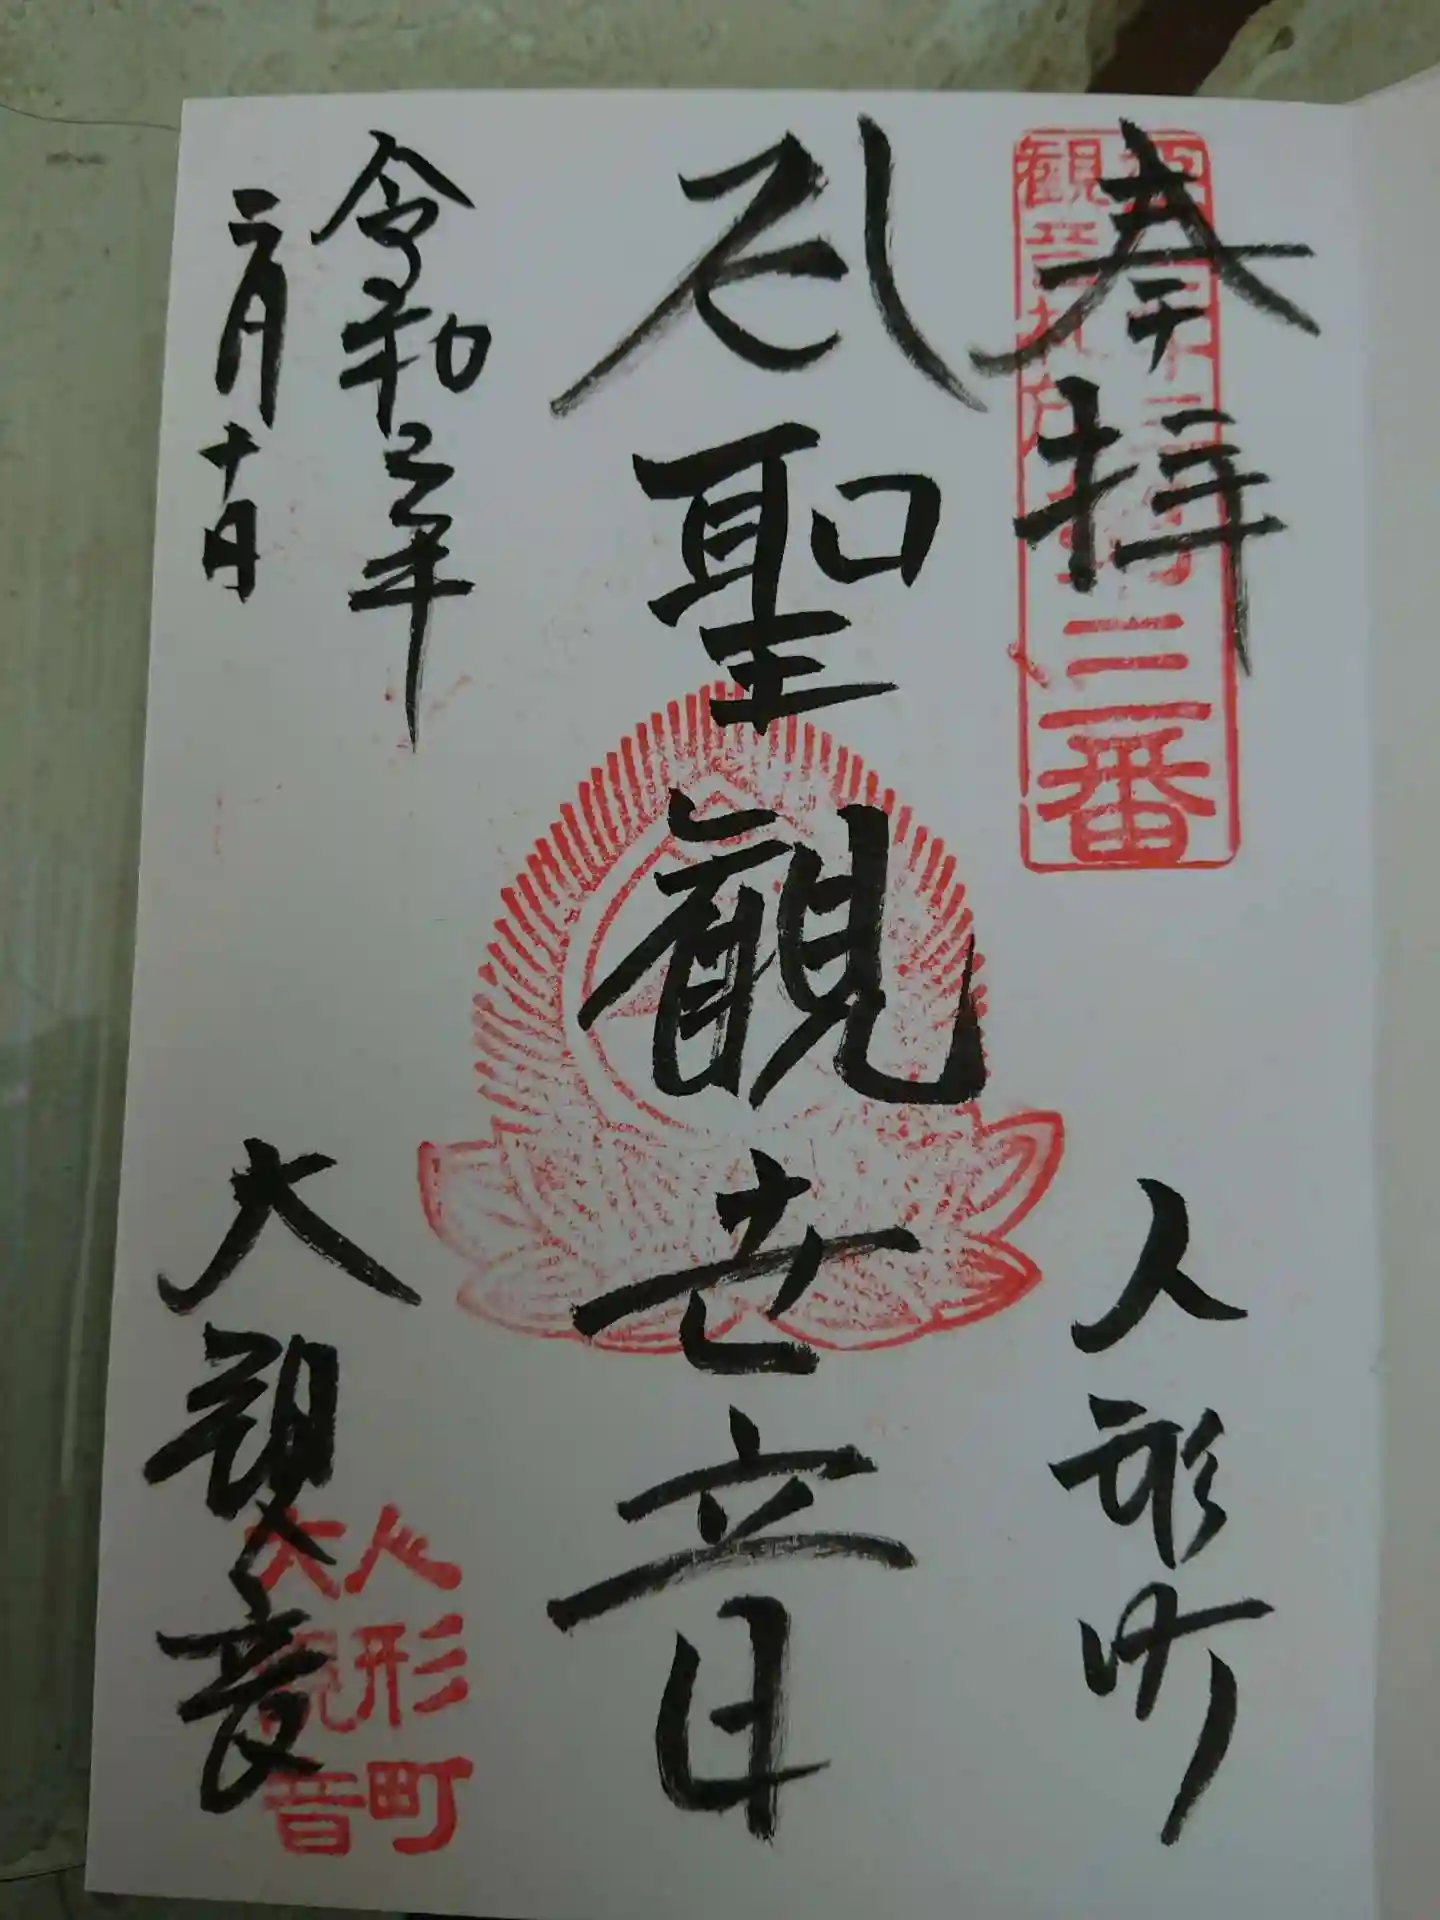 奉拝
三番
人形町
聖観世音
令和
年
二月十日
大観音
人形町
大観音